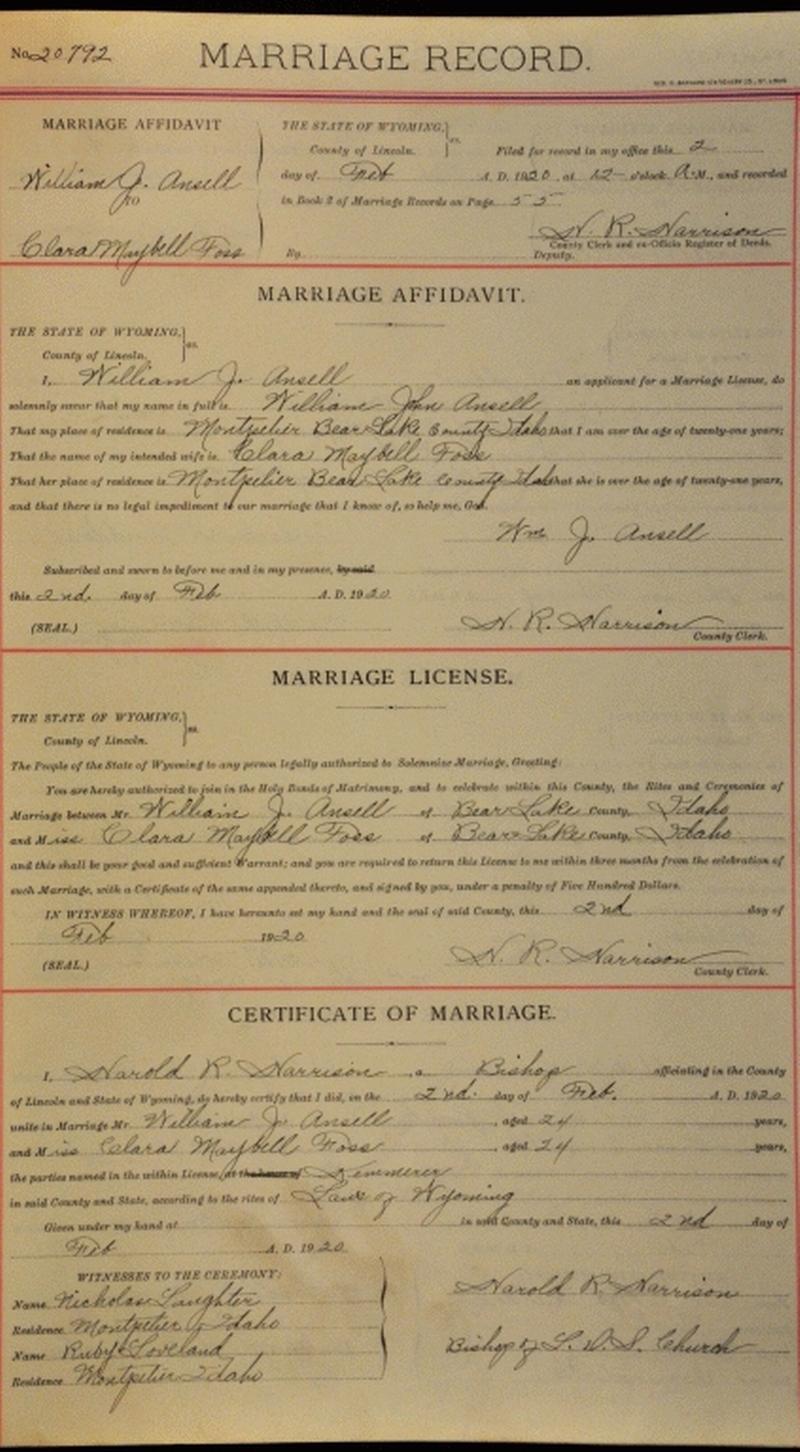 No. 20792 MARRIAGE RECORD.
MARRIAGE AFFIDAVIT
William J. Ansell
TO
Clara Maybell Foss
THE STATE OF WYOMING, } ss.
County of Lincoln.
Filed for record in my office this 2
day of Feb A. D. 1920, at 12 o'clock A.M., and recorded
in Book 2 of Marriage Records on Page 55
H. R. Harrison
County Clerk and ex-Officio Register of Deeds.
By Deputy.
MARRIAGE AFFIDAVIT.
THE STATE OF WYOMING, } ss.
County of Lincoln.
I, William J. Ansell an applicant for a Marriage License, do
solemnly swear that my name in full is William John Ansell
That my place of residence is Montpelier Bear Lake County Idaho that I am over the age of twenty-one years;
That the name of my intended wife is Clara Maybell Foss
That her place of residence is Montpelier Bear Lake County Idaho that she is over the age of twenty-one years,
and that there is no legal impediment to our marriage that I know of, so help me, God.
Wm J. Ansell
Subscribed and sworn to before me and in my presence, by said
this 2nd. day of Feb A. D. 1920
(SEAL.) H. R. Harrison
County Clerk.
MARRIAGE LICENSE.
THE STATE OF WYOMING, } ss.
County of Lincoln.
The People of the State of Wyoming to any person legally authorized to Solemnize Marriage, Greeting:
You are hereby authorized to join in the Holy Bonds of Matrimony, and to celebrate within this County, the Rites and Ceremonies of
Marriage between Mr. William J. Ansell of Bear Lake County, Idaho
and Miss Clara Maybell Foss of Bear Lake County, Idaho
and this shall be your good and sufficient Warrant; and you are required to return this License to me within three months from the celebration of
such Marriage, with a Certificate of the same appended thereto, and signed by you, under a penalty of Five Hundred Dollars.
IN WITNESS WHEREOF, I have hereunto set my hand and the seal of said County, this 2nd day of
Feb 1920
(SEAL.) H. R. Harrison
County Clerk.
CERTIFICATE OF MARRIAGE.
I, Harold R. Harrison, a Bishop officiating in the County
of Lincoln and State of Wyoming, do hereby certify that I did, on the 2nd. day of Feb. A. D. 1920
unite in Marriage Mr. William J. Ansell, aged 24 years,
and Miss Clara Maybell Foss, aged 24 years,
the parties named in the within License, at the house of Kemmerer
in said County and State, according to the rites of Laws of Wyoming
Given under my hand at in said County and State, this 2nd day of
Feb A. D. 1920
WITNESSES TO THE CEREMONY:
Name Nicholas Laughter
Residence Montpelier Idaho
Name Ruby Loveland
Residence Montpelier Idaho
Harold R. Harrison
Bishop of L. D. S. Church